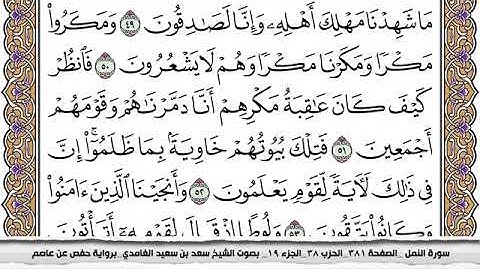 مَا شَهِدْنَا مَهْلِكَ أَهْلِهِۦ وَإِنَّا لَصَٰدِقُونَ ٤٩ وَمَكَرُوا۟
مَكْرًا وَمَكَرْنَا مَكْرًا وَهُمْ لَا يَشْعُرُونَ ٥٠ فَٱنظُرْ
كَيْفَ كَانَ عَٰقِبَةُ مَكْرِهِمْ أَنَّا دَمَّرْنَٰهُمْ وَقَوْمَهُمْ
أَجْمَعِينَ ٥١ فَتِلْكَ بُيُوتُهُمْ خَاوِيَةًۢ بِمَا ظَلَمُوٓا۟ ۗ إِنَّ
فِى ذَٰلِكَ لَءَايَةً لِّقَوْمٍ يَعْلَمُونَ ٥٢ وَأَنجَيْنَا ٱلَّذِينَ ءَامَنُوا۟
وَكَانُوا۟ يَتَّقُونَ ٥٣ وَلُوطًا إِذْ قَالَ لِقَوْمِهِۦٓ أَتَأْتُونَ
سورة النمل _الصفحة ٣٨١_ الحزب ٣٨_ الجزء ١٩_ بصوت الشيخ سعد بن سعيد الغامدي_ برواية حفص عن عاصم